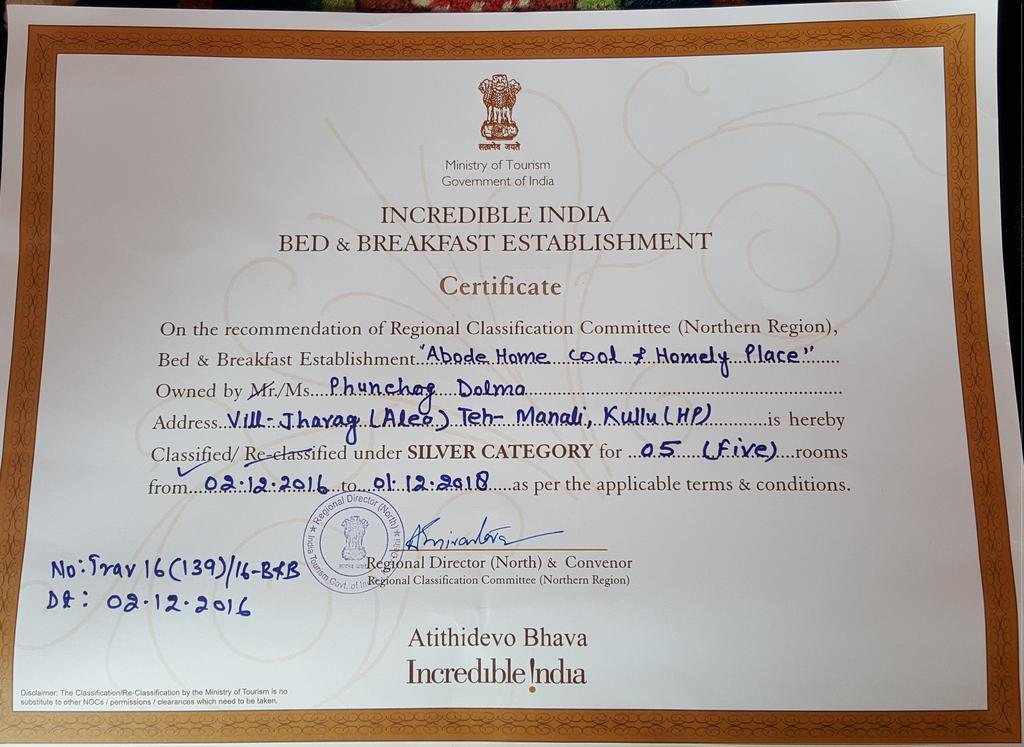 सत्यमेव जयते
Ministry of Tourism
Government of India
INCREDIBLE INDIA
BED & BREAKFAST ESTABLISHMENT
Certificate
On the recommendation of Regional Classification Committee (Northern Region),
Bed & Breakfast Establishment "Abode Home Cool & Homely Place"
Owned by Mr./Ms. Phunchog Dolma
Address Vill- Jharag (Aleo) Teh- Manali, Kullu (HP) is hereby
Classified/ Re-classified under SILVER CATEGORY for 05 (Five) rooms
from 02.12.2016 to 01.12.2018 as per the applicable terms & conditions.
Regional Director (North)
India Tourism Govt. of
Regional Director (North) & Convenor
Regional Classification Committee (Northern Region)
No: Trav 16(139)/16-B&B
Dt: 02.12.2016
Atithidevo Bhava
Incredible !ndia
Disclaimer: The Classification/Re-Classification by the Ministry of Tourism is no
substitute to other NOCs / permissions / clearances which need to be taken.